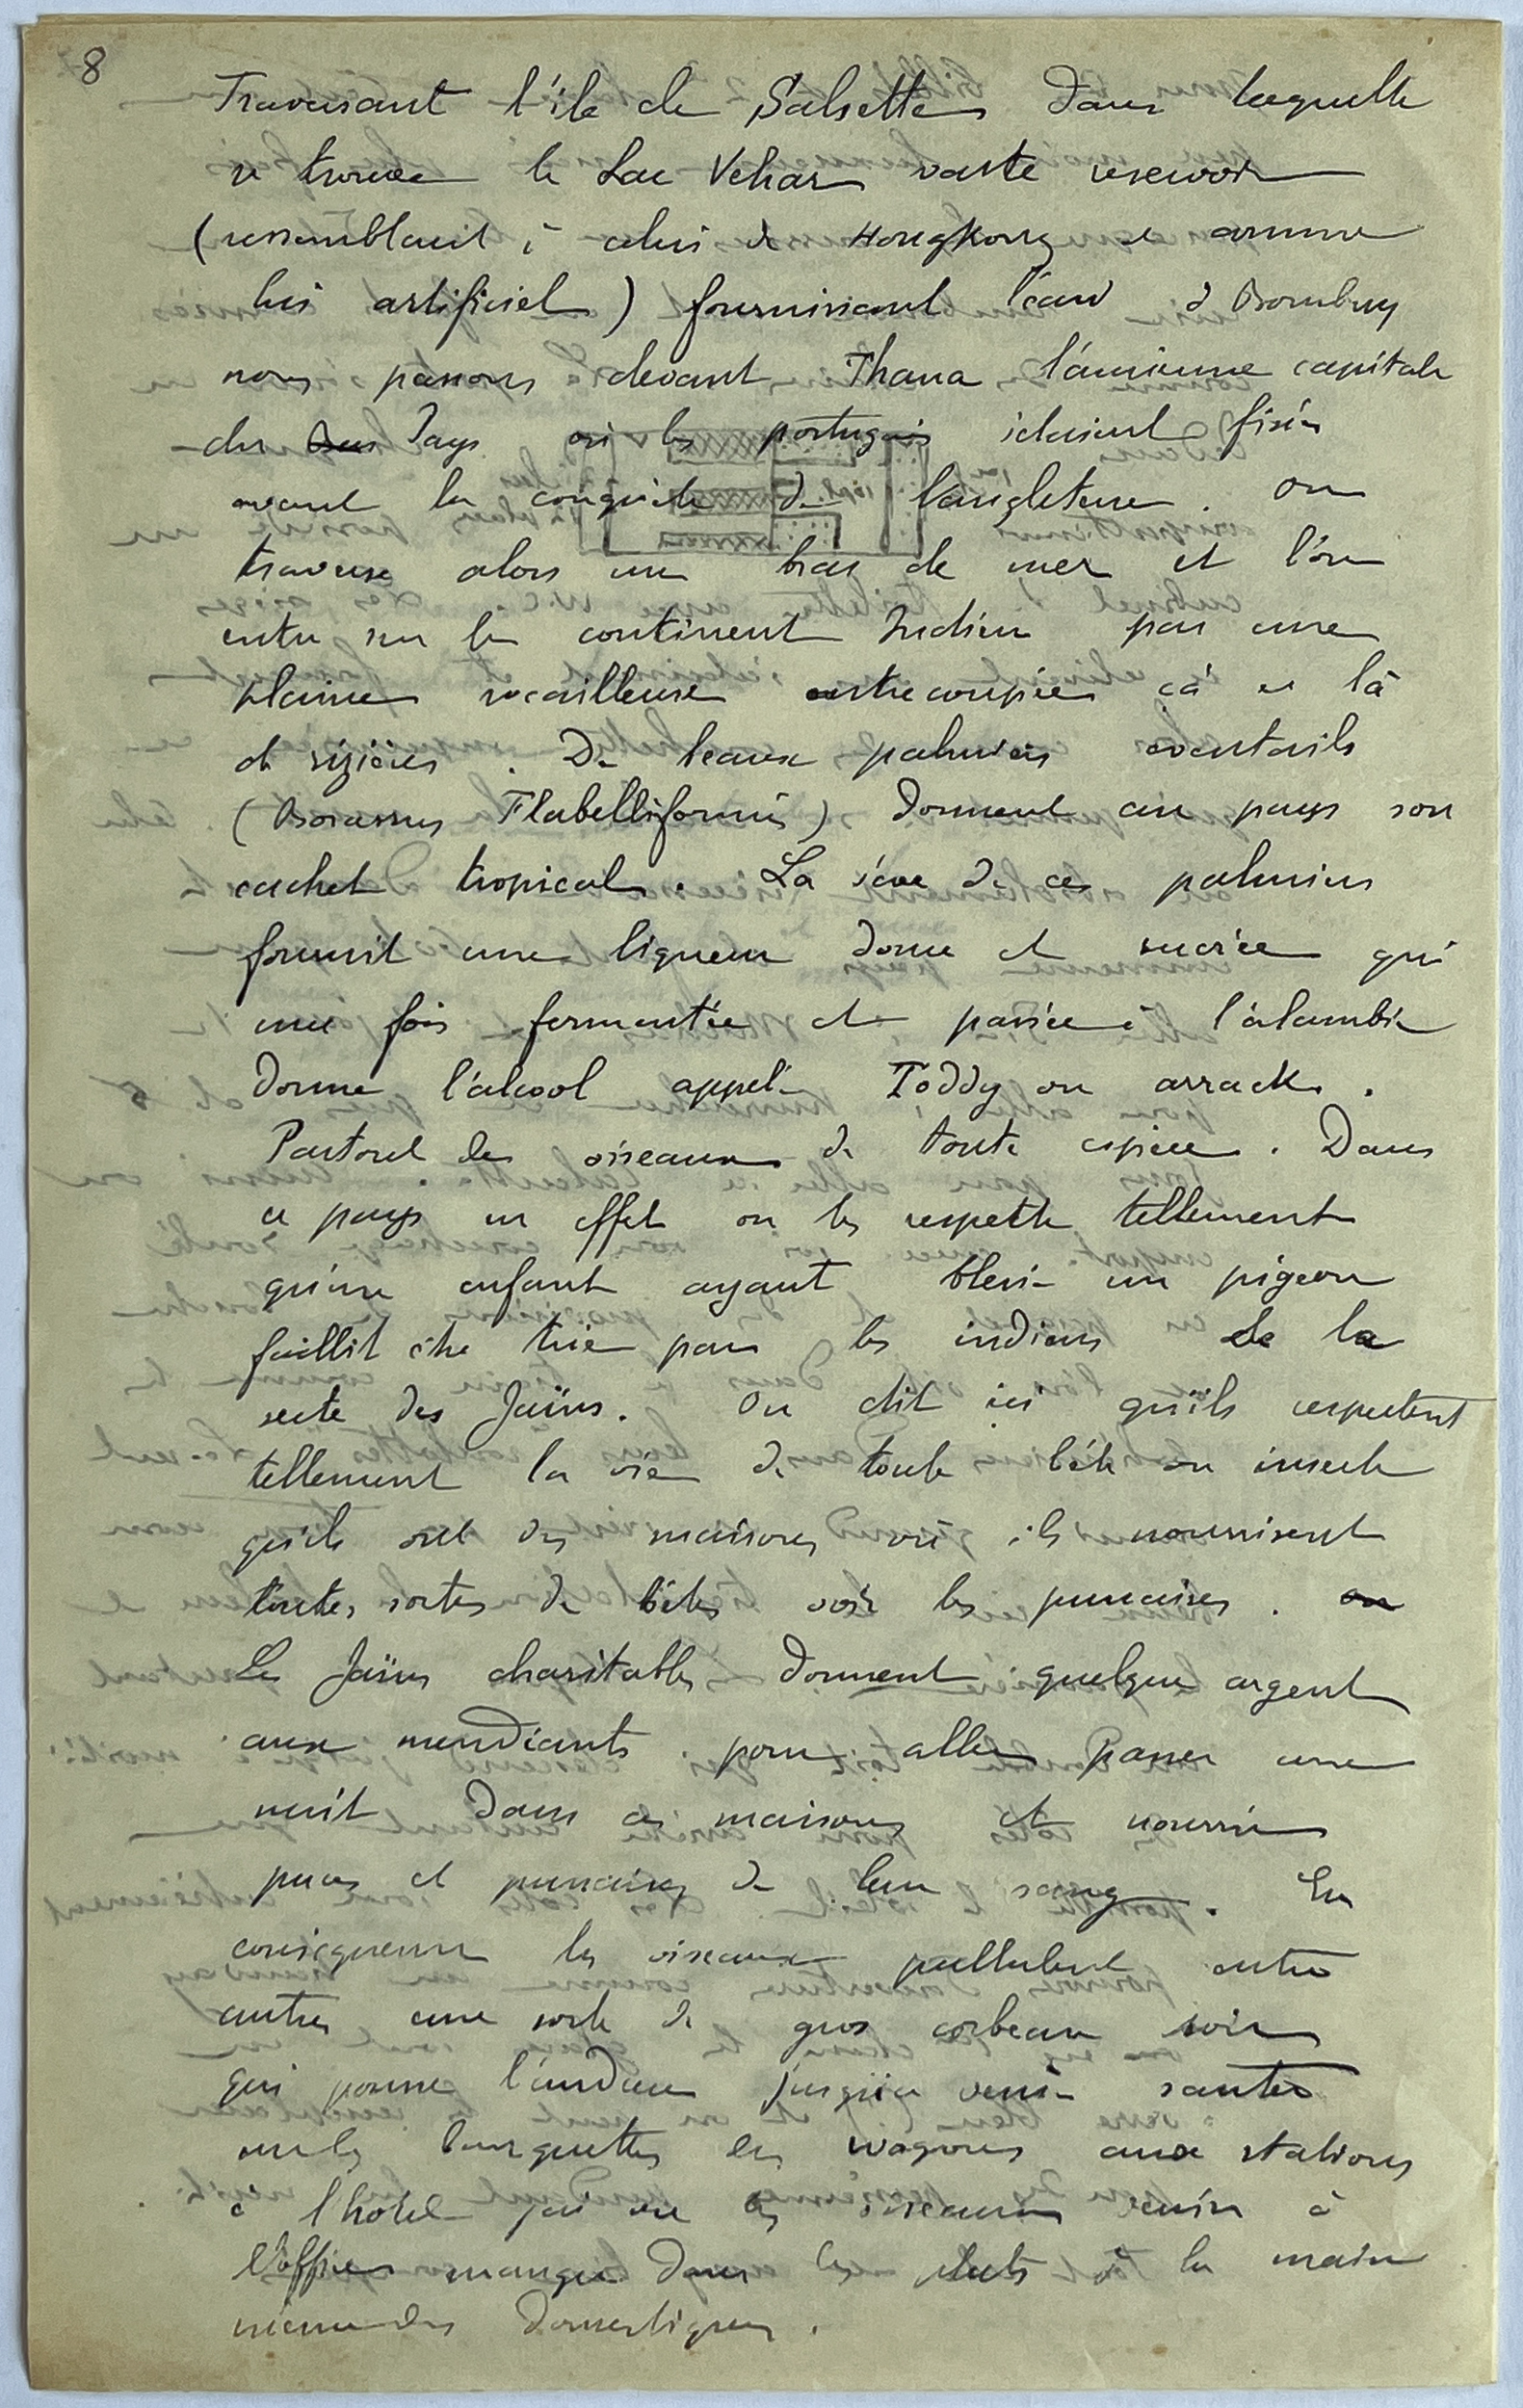 8
Traversant l'île de Salsette dans laquelle
se trouve le Lac Vehar vaste reservoir
(ressemblant à celui de HongKong et comme
lui artificiel) fournissant l'eau à Bombay
nous passons devant Thana l'ancienne capitale
du Pays où les portugais s'étaient fixés
avant la conquête de l'angleterre. On
traverse alors un bras de mer et l'on
entre sur le continent Indien par une
plaine rocailleuse entrecoupée çà et là
de rizières. De beaux palmiers éventails
(Borassus Flabelliformis) donnent au pays son
cachet tropical. La sève de ces palmiers
fournit une liqueur douce et sucrée qui
une fois fermentée et passée à l'alambic
donne l'alcool appelé Toddy ou arrack.
Partout des oiseaux de toute espèce. Dans
ce pays en effet on les respecte tellement
qu'une enfant ayant blessé un pigeon
faillit être tuée par les indiens de la
secte des Jaïns. On dit ici qu'ils respectent
tellement la vie de toute bête ou insecte
qu'ils ont des maisons où ils nourrissent
toutes sortes de bêtes voir les punaises.
Les Jaïns charitables donnent quelque argent
aux mendiants pour aller passer une
nuit dans ces maisons et nourrir
puces et punaises de leur sang. En
conséquence les oiseaux pullulent entre
autres une sorte de gros corbeau noir
qui pousse l'audace jusqu'à venir sauter
sur les banquettes des wagons aux stations
à l'hotel j'ai vu ces oiseaux venir à
l'office manger dans les plats à la main
même des domestiques.